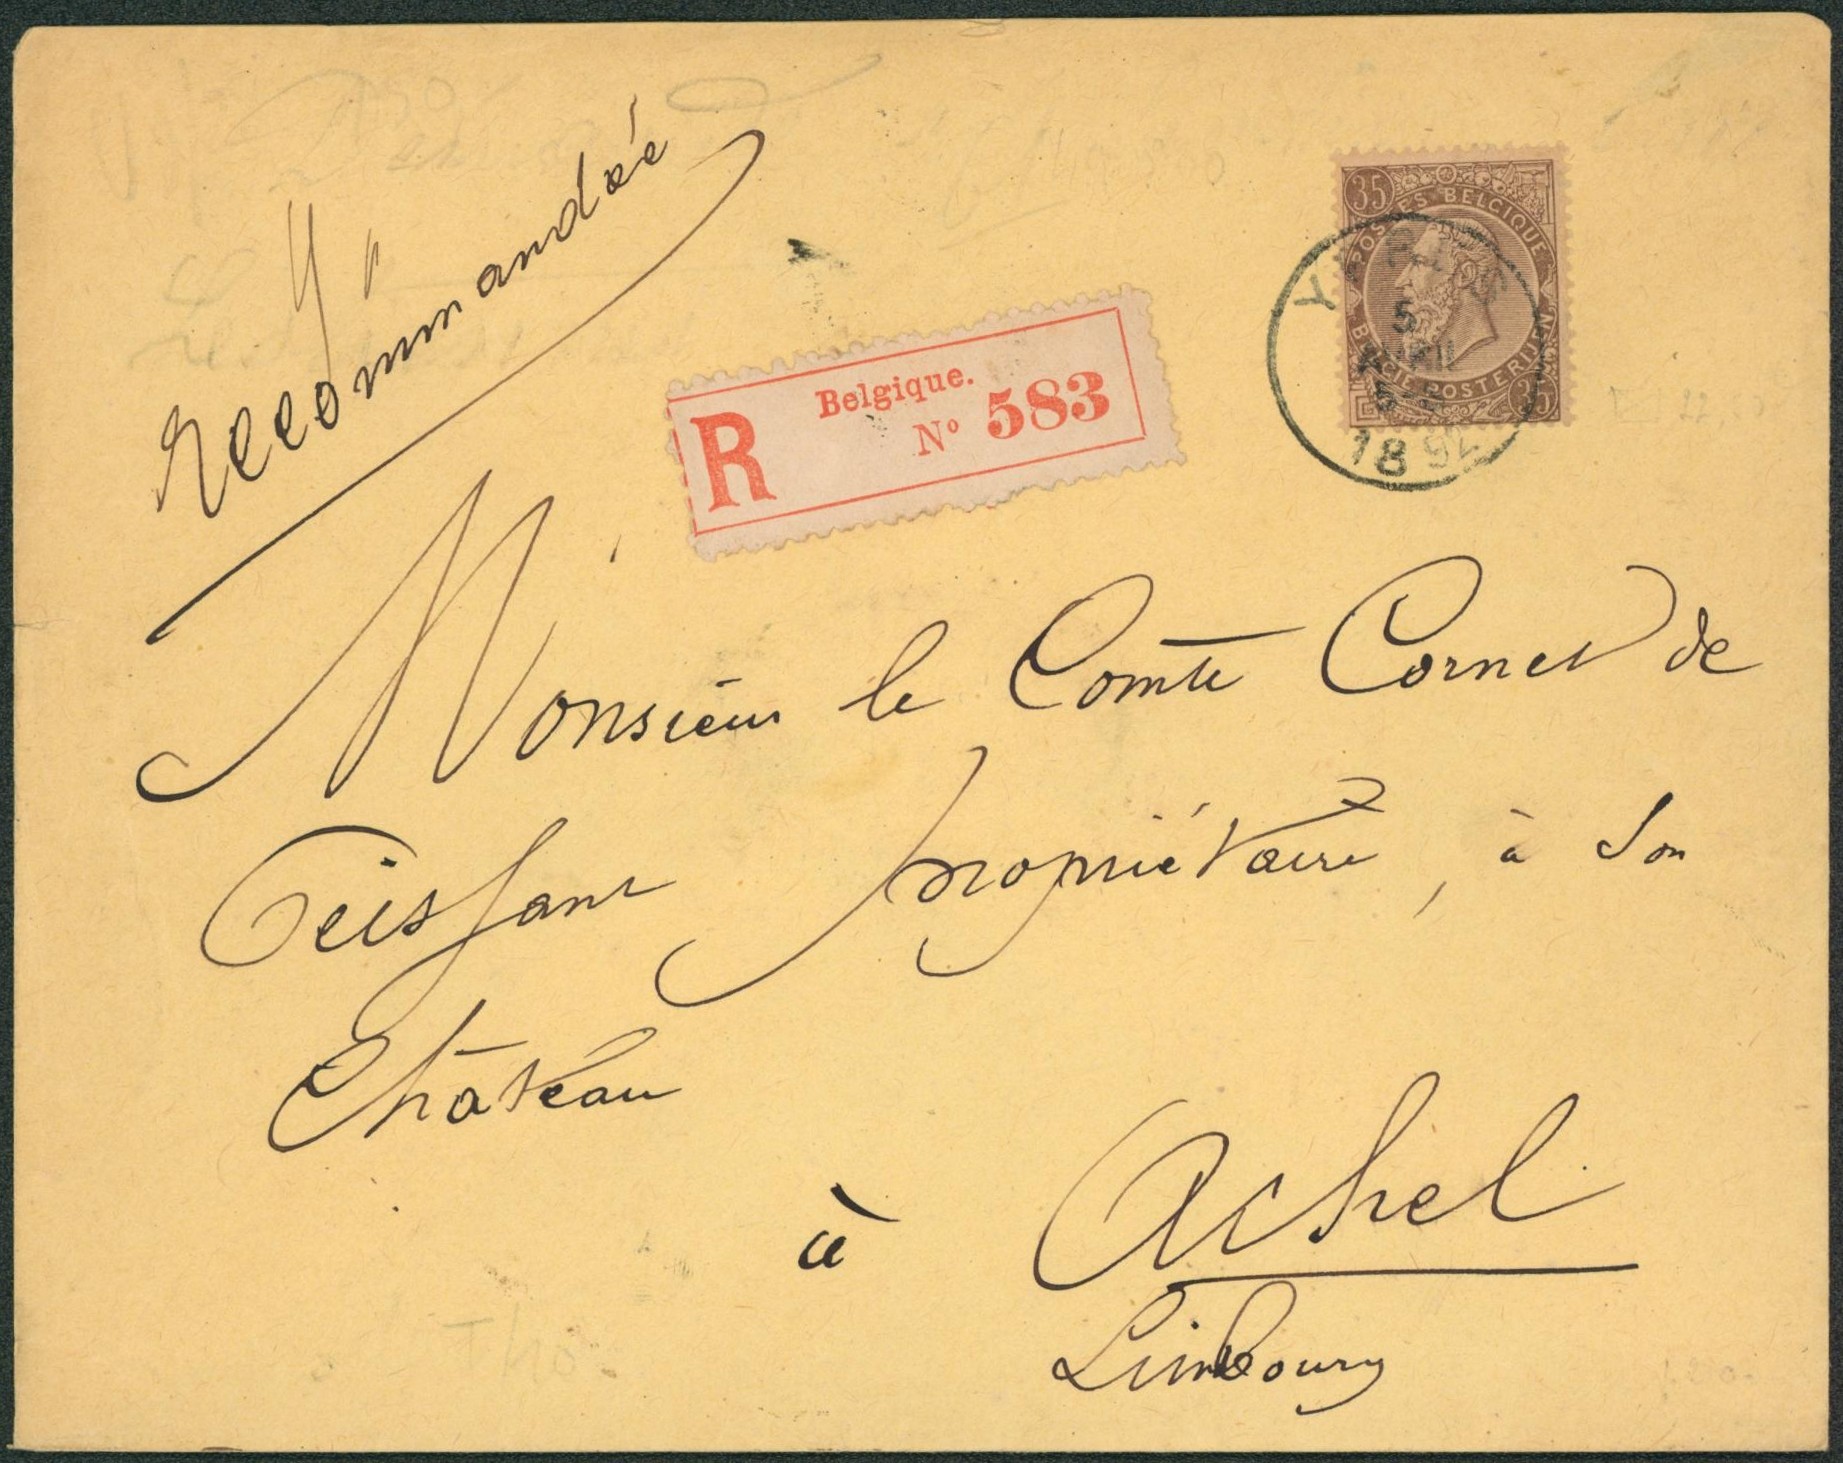 Recommandée
35
POSTES BELGIQUE
BELGIE POSTERIJEN
35
YPRES
5
1892
R
Belgique.
Nº 583
Monsieur le Comte Cornet de
Ceissant propriétaire, à son
Château
à Achel
Limbourg